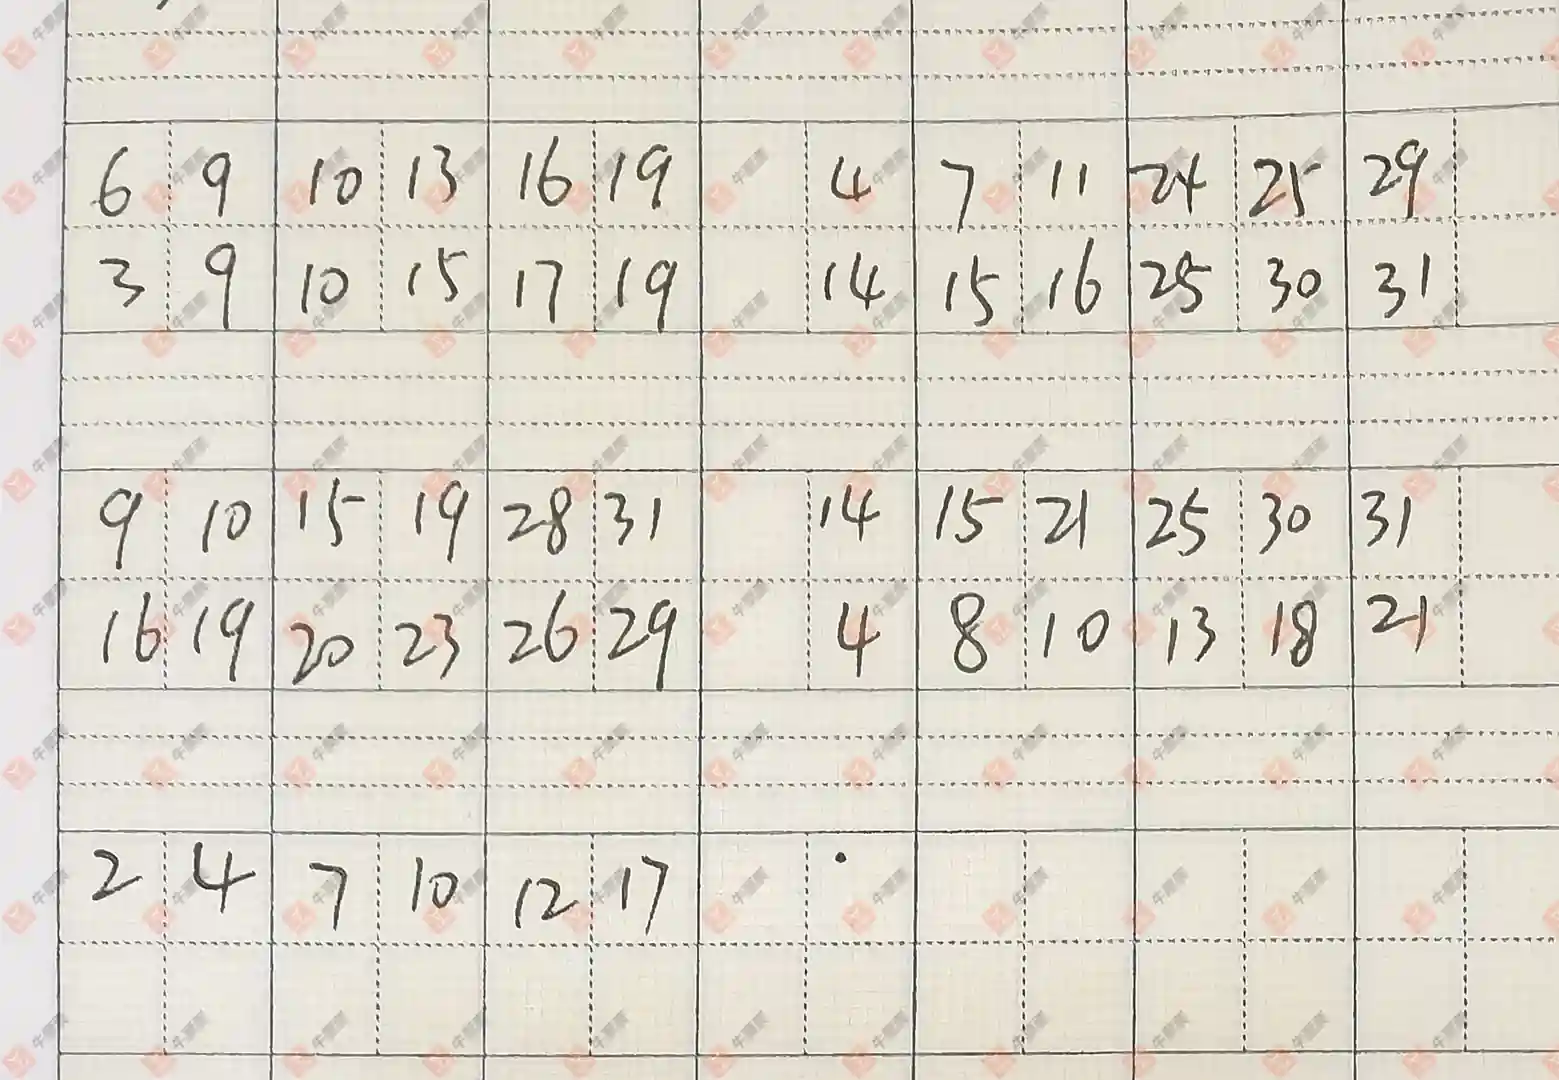 6 9 10 13 16 19 4 7 11 24 25 29
3 9 10 15 17 19 14 15 16 25 30 31
9 10 15 19 28 31 14 15 21 25 30 31
16 19 20 23 26 29 4 8 10 13 18 21
2 4 7 10 12 17